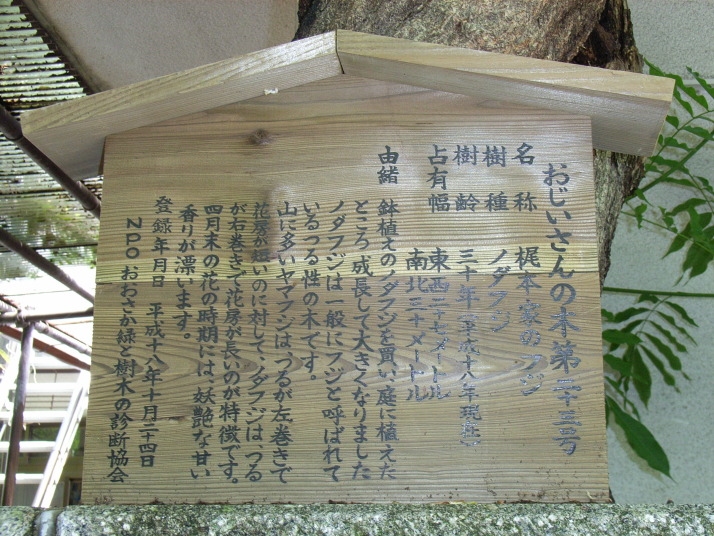 おじいさんの木第二十三号
名称 梶本家のフジ
樹種 ノダフジ
樹齢 三十年(平成十八年現在)
占有幅 東西二十七メートル
南北三十メートル
由緒 鉢植えのノダフジを買い、庭に植えた
ところ成長して大きくなりました
ノダフジは一般にフジと呼ばれて
いるつる性の木です。
山に多いヤマフジは、つるが左巻きで
花房が短いのに対して、ノダフジは、つる
が右巻きで花房が長いのが特徴です。
四月末の花の時期には、妖艶な甘い
香りが漂います。
登録年月日 平成十八年十月二十四日
NPOおおさか緑と樹木の診断協会